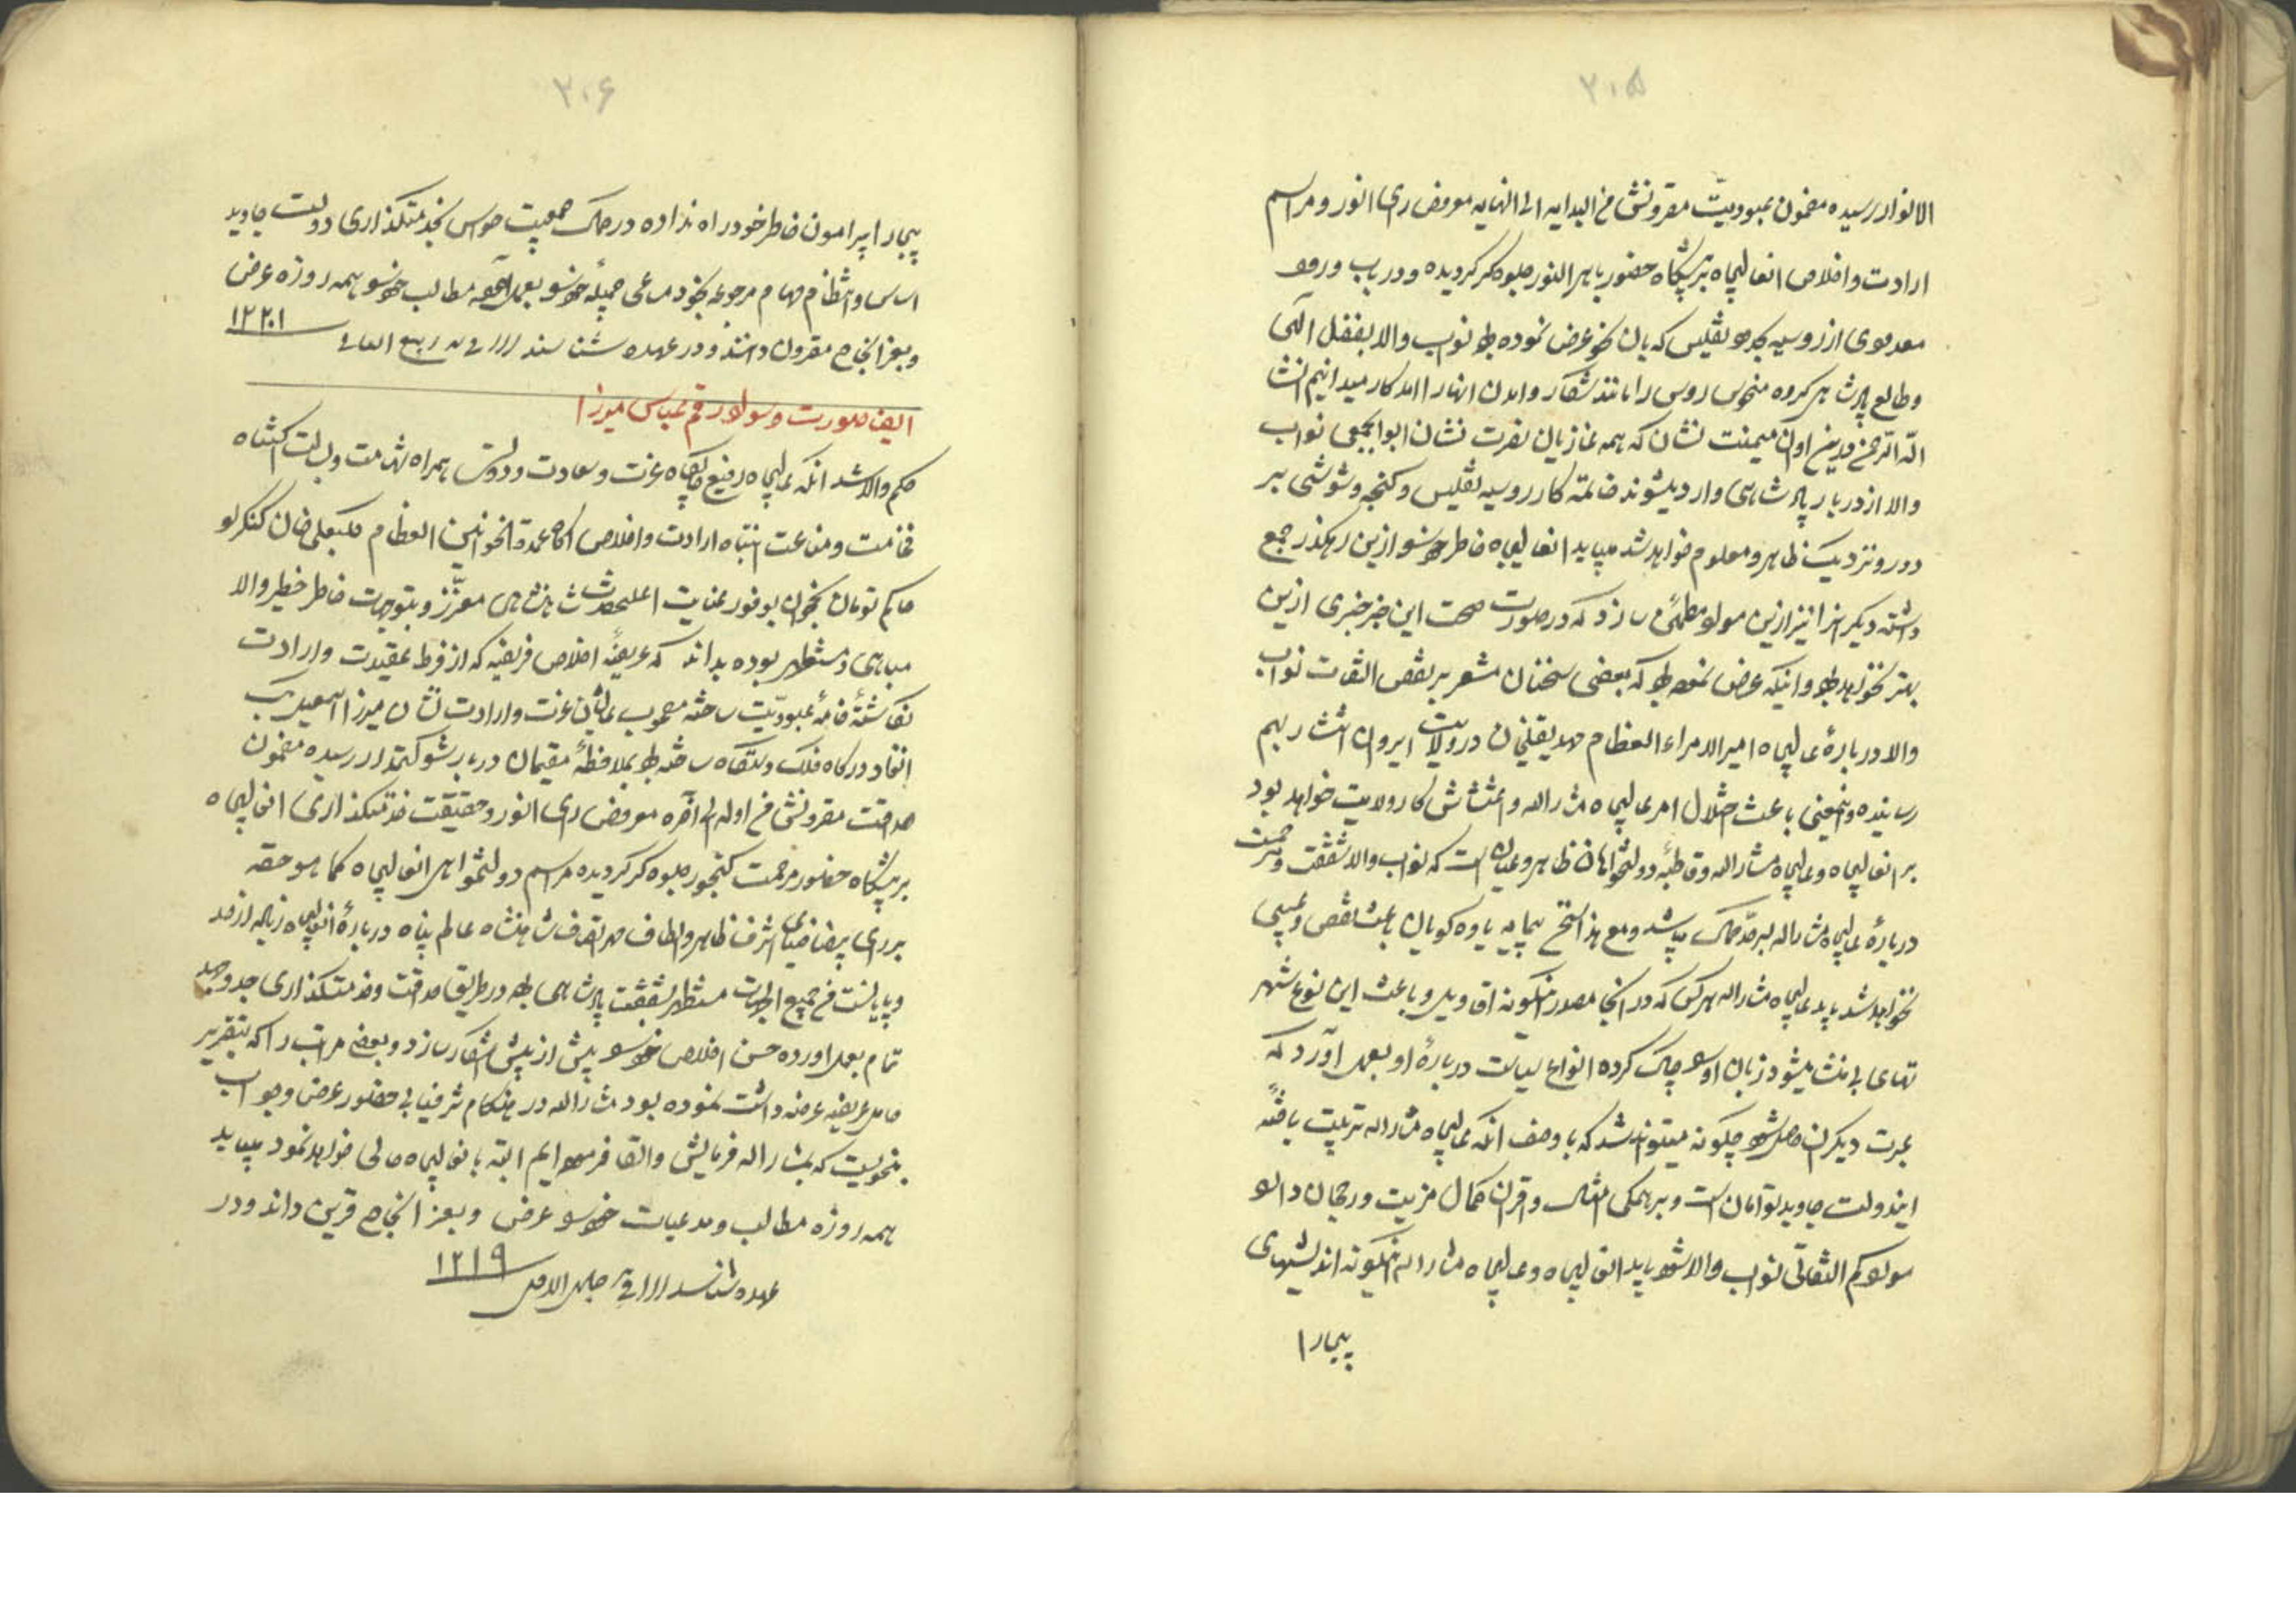 ۲۰۵
الانوار رسیده مضمون عبودیت مقرونش من البدایه الی النهایه معروض رای انور و مراسم
ارادت و اخلاص انعالیجاه بر پیشگاه حضور باهر النور جلوه گر گردیده و در باب ورود
معدودی از روسیه بحدود تفلیس که بان نحو عرض نموده بود نواب والا بفضل الهی
و طالع پادشاهی گروه منحوس روس را مانند شکار و امدن انها را امدکار میدانیم انشا
الله الرحمن درین اوان میمنت نشان که همه غازیان نصرت نشان ابوابجمعی نواب
والا از دربار پادشاهی وارد میشوند خاتمه کار روسیه تفلیس و گنجه و شوشی بر
دور و نزدیک ظاهر و معلوم خواهد شد میباید انعالیجاه خاطر خود را ازین رهگذر جمع
داشته دیگرانرا نیز ازین مواد مطمئن سازد که در صورت صحت این خبر خبری ازین
بهتر نخواهد بود و اینکه عرض نموده بود که بعضی سخنان مشعر بر نقص التفات نواب
والا درباره عالیجاه امیر الامراء العظام مهدیقلیخان در ولایت ایروان انتشار بهم
رسانیده و اینمعنی باعث اختلال امر عالیجاه مشارالیه و اغتشاش کار ولایت خواهد بود
بر انعالیجاه و عالیجاه مشارالیه و قاطبه دولتخواهان ظاهر و عیان است که نواب والا شفقت و مرحمت
درباره عالیجاه مشارالیه بسرحد کمال میباشد و مع هذا سخن بیمایه یاوه گویان باعث نقص و عیبی
نخواهد شد باید عالیجاه مشارالیه هر کس که در انجا مصدر اینگونه اقاویل و باعث این نوع شهر
تهای بی منشا میشود زبان او را چاک کرده انواع سیاست درباره او بعمل آورد که
عبرت دیگران حاصل شود چگونه میتواند شد که با وصف انکه عالیجاه مشارالیه تربیت یافته
ایندولت جاوید توامان است و بر همگی امثال و اقران کمال مزیت و رجحان دارد
مورد کم التفاتی نواب والا شود باید انعالیجاه و عالیجاه مشارالیه اینگونه اندیشهای
بیجا را
۲۰۶
بیجا را پیرامون خاطر خود راه نداده در کمال جمعیت حواس بخدمتگذاری دولت جاوید
اساس و انتظام مهام مرجوعه بخود مساعی جمیله خود را بعمل آورده مطالب خود را همه روزه عرض
و بعز انجاح مقرون دانند و در عهده شناسند ربیع الثانی ۱۲۲۰
ایضا صورت و سواد رقم عباس میرزا
حکم والا شد انکه عالیجاه رفیع جایگاه عزت و سعادت و دولت همراه شهامت و بسالت اکتناه
فخامت و مناعت انتباه ارادت و اخلاص اگاه عمدة الخوانین العظام کلبعلی خان کنگرلو
حاکم تومان نخجوان بوفور عنایت اعلیحضرت شاهنشاهی معزز و بتوجهات خاطر خطیر والا
مباهی و مستظهر بوده بداند که عریضه اخلاص فریضه که از فرط عقیدت و ارادت
نگاشته خامه عبودیت ساخته مصحوب عالیشان عزت و ارادت نشان میرزا اسمعیل بیک
انفاد درگاه فلک دستگاه ساخته بود بملاحظه مقیمان دربار شوکتمدار رسیده مضمون
صداقت مقرونش من اوله الی آخره معروض رای انور و حقیقت خدمتگذاری انعالیجاه
بر پیشگاه حضور مرحمت گنجور جلوه گر گردیده مراسم دولتخواهی انعالیجاه کما هو حقه
بر رای بیضا ضیای اشرف ظاهر و الطاف شاهنشاه عالم پناه درباره انعالیجاه زیاده از حد
و میبایست من جمیع الجهات مستظهر بشفقت پادشاهی بوده در طریق صداقت و خدمتگذاری جد و جهد
تمام بعمل اورده حسن اخلاص خود را بیش از پیش اشکار سازد و بعضی مراتب را که بتقریر
حامل عریضه عرضه داشت نموده بود مشارالیه در هنگام شرفیابی حضور عرض و جواب
بنحویست که بمشارالیه فرمایش و القا فرموده ایم البته بانعالیجاه حالی خواهد نمود میباید
همه روزه مطالب و مدعیات خود را عرض و بعز انجاح قرین داند و در
عهده شناسد جمادی الاول ۱۲۱۹